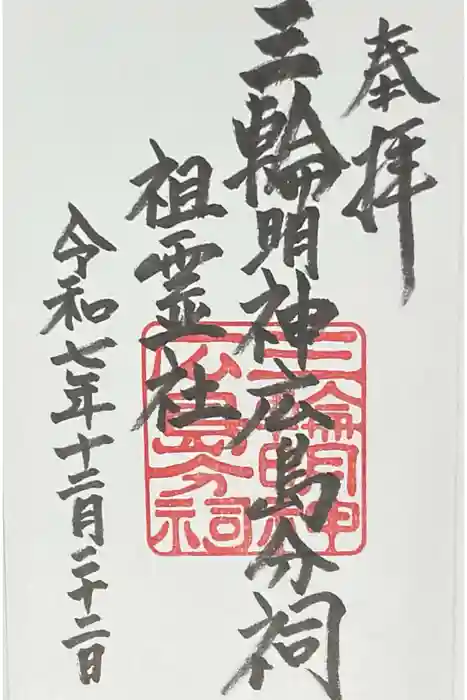 奉拝
三輪明神広島分祠
祖霊社
令和七年十二月二十二日
三輪明神
広島分祠